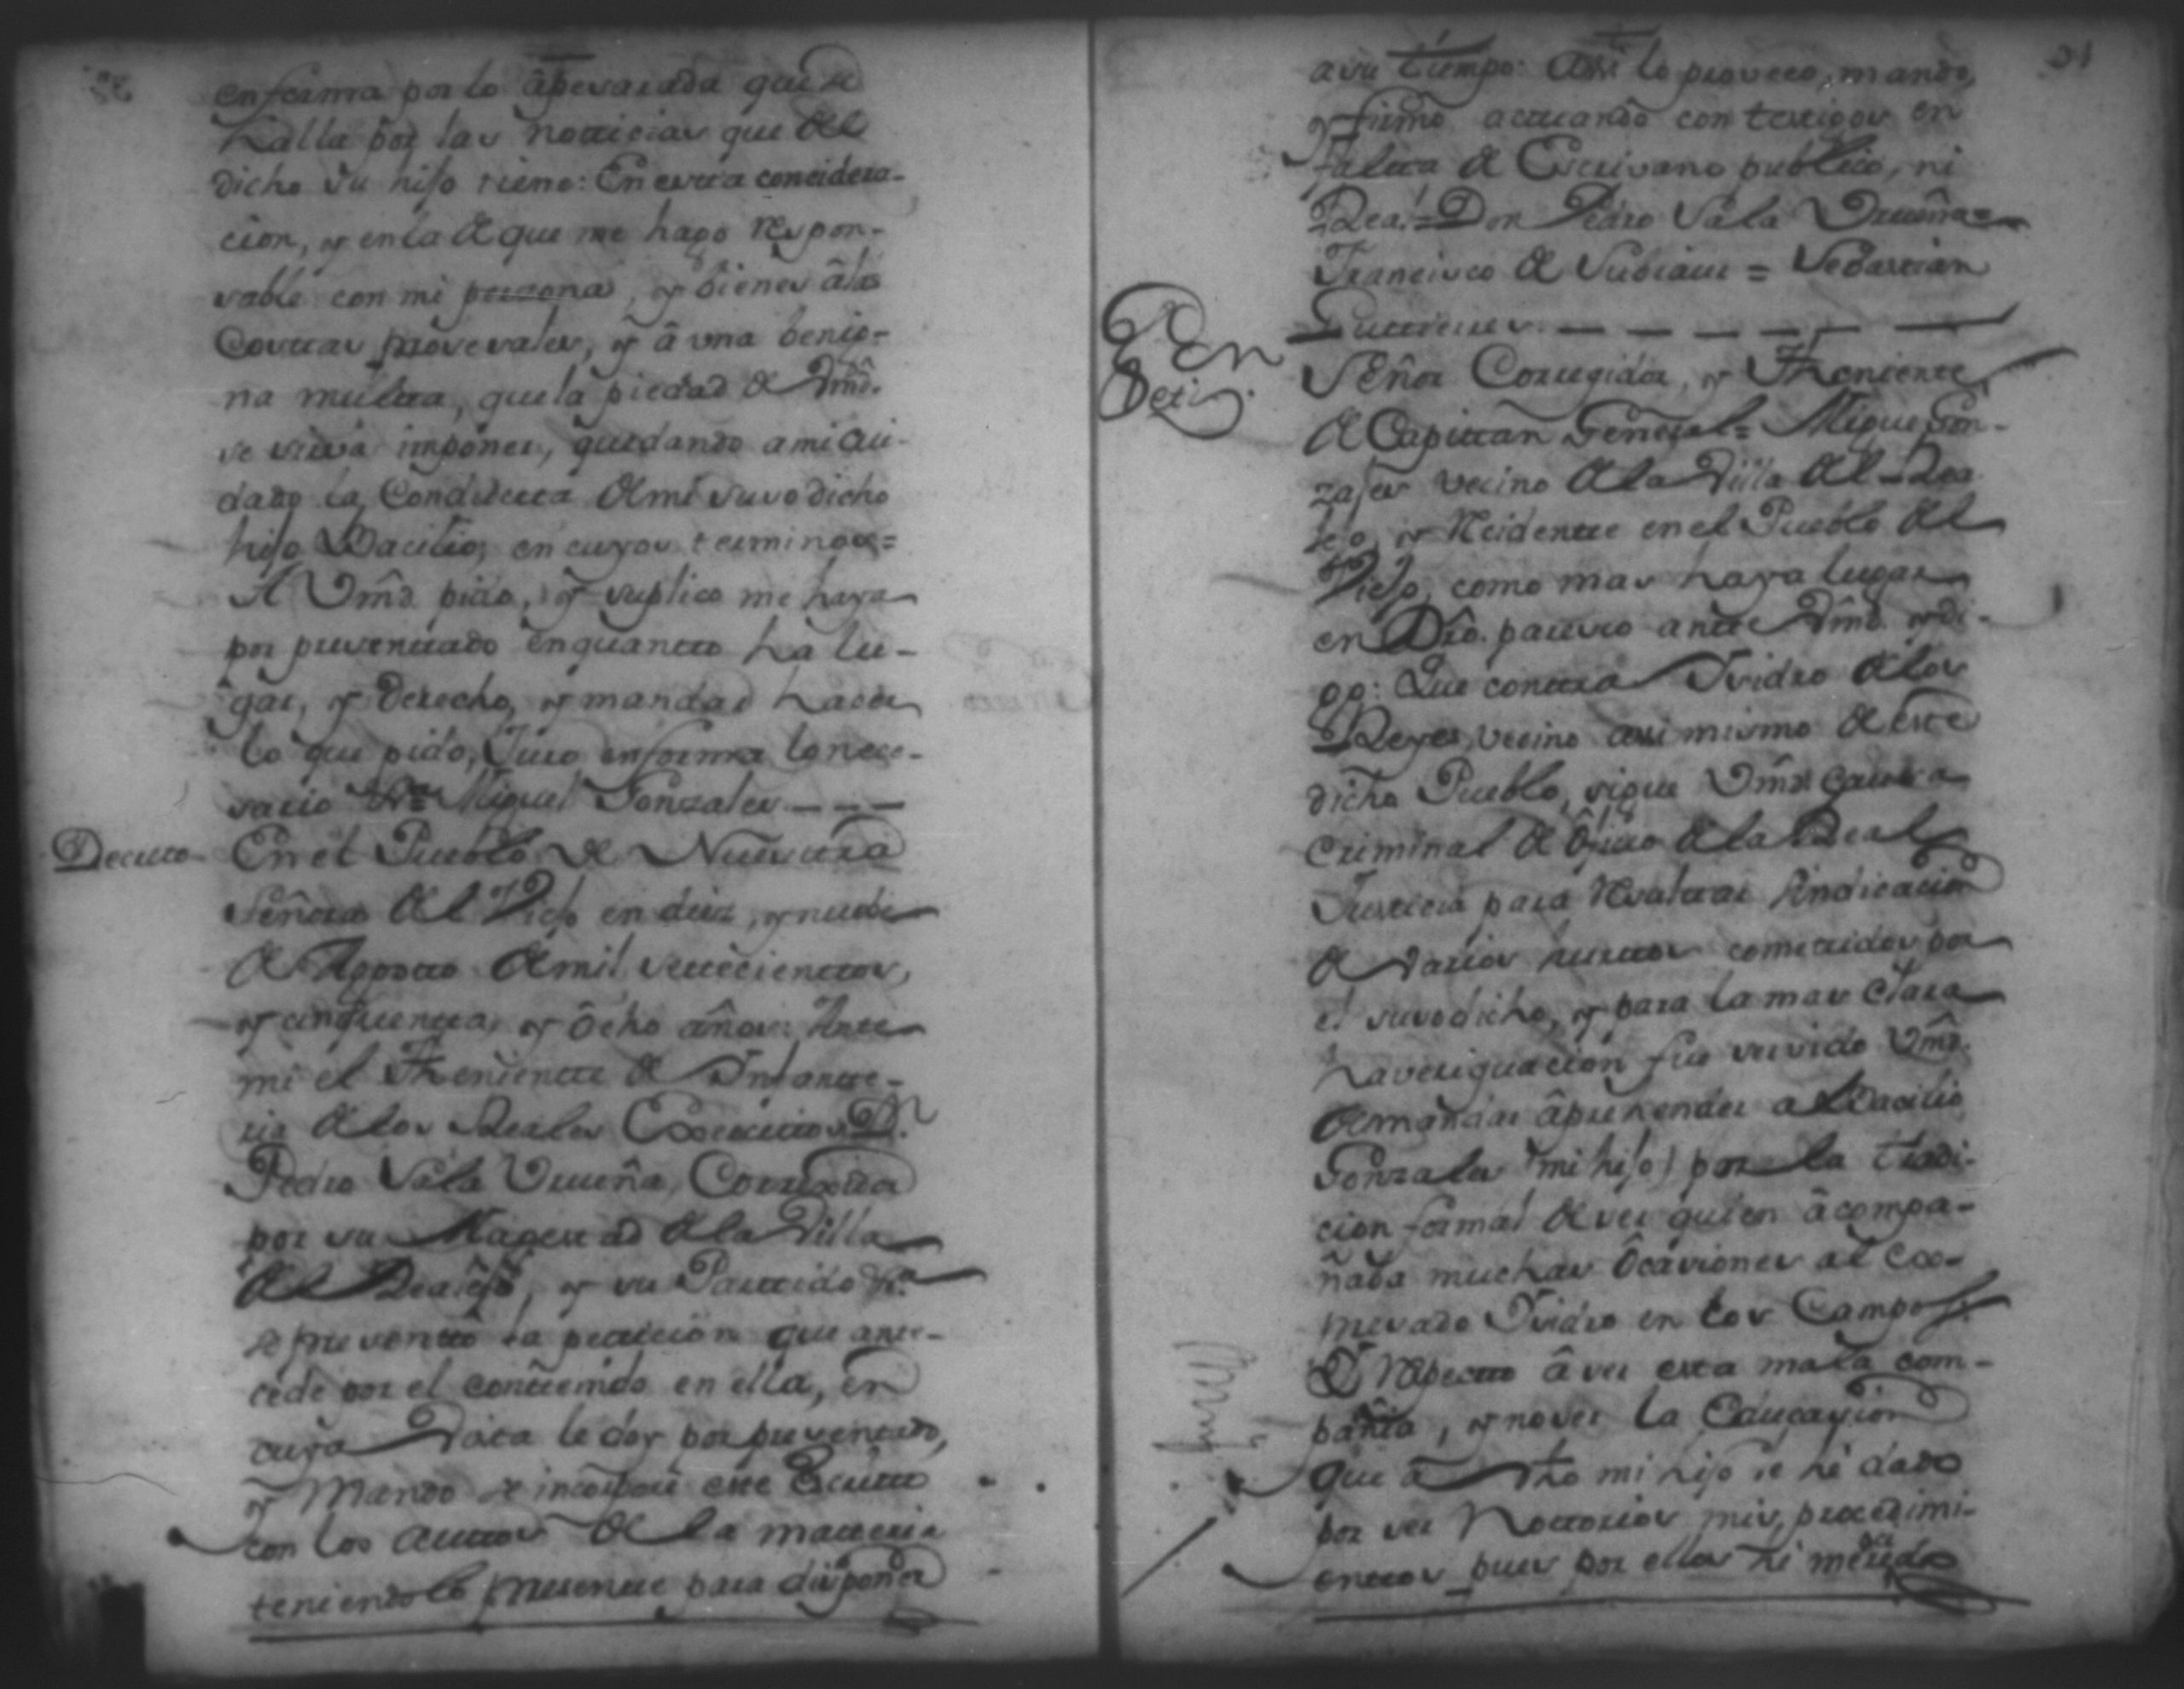 enferma por lo âpesarada que se
halla por las notticias que del
dicho su hijo tiene: En estta considera-
cion, y en la de que me hago respon-
sable con mi persona, y bienes âlas
Costtas prosesales, y â una benig-
na multta, que la piedad de Vmd.
se sirva imponer, quedando a mi cui-
dado la Conductta de mi suso dicho
hijo Bacilio, en cuyos terminos=
A Vmd. pido, y suplico me haya
por presenttado en quantto ha lu-
gar, y derecho, y mandar hacer
lo que pido, Juro en forma lo nece-
sario Miguel Gonzales - - -
Decretto En el Pueblo de Nuesttra
Señora del Viejo en diez, y nuebe
de Agostto de mil settecienttos,
y cinquentta, y ôcho años: Antte
mi el Thenientte de Infantte-
ria de los Reales Exercittos Dn.
Pedro Sala Vrueña, Corregidor
por su Magesttad de la Villa
del Realejo, y su Parttido
se presenttô la petticion que antte-
cede por el conttenido en ella, en
cuya Vista le doy por presenttado,
y Mando se incorpore este Escritto
con los auttos de la matteria
teniendolo presentte para disponer
31
a su tiempo: Assi lo proveeo, mando,
y firmo actuando con testigos en
faltta de Escrivano publico, ni
Real = Don Pedro Sala Vrueña=
Francisco de Subiaur = Sebasttian
Guttierres - - - - - -
Petin.
Señor Corregidor, y Thenientte
de Capittan General= Miguel Gon-
zales vecino de la Villa del Rea
lejo, y Residentte en el Pueblo del
Viejo, como mas haya lugar
en Dro. paresco antte Vmd. y di-
go: Que conttra Ysidro de los
Reyes, vecino assi mismo de este
dicho Pueblo, sigue Vmd. causa
criminal de ôficio de la Real
Justticia para Resulttar Yndicacion
de varios hurttos comettidos por
el suso dicho, y para la mas clara
haveriguacion fue servido Vmd.
de mandar âprehender a Bacilio
Gonzales (mi hijo) por la tradi-
cion formal de ser quien âcompa-
ñaba muchas ôcasiones al Ex-
presado Ysidro en los Campos.
Respectto â ser esta mala com-
pañia, y no ser la Educasion
que â dho mi hijo le hé dado
por ser Nottorios mis procedimi-
enttos pues por ellos hé meresido